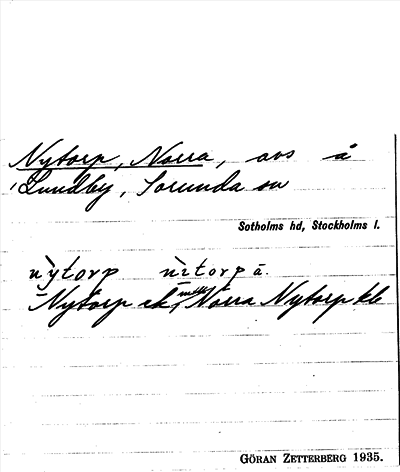 Nytorp, Norra, avs å
Lundby, Sorunda sn
Sotholms hd, Stockholms l.
nỳtorp nìtorpā.
Nytorp ek, Norra Nytorp kb
GÖRAN ZETTERBERG 1935.